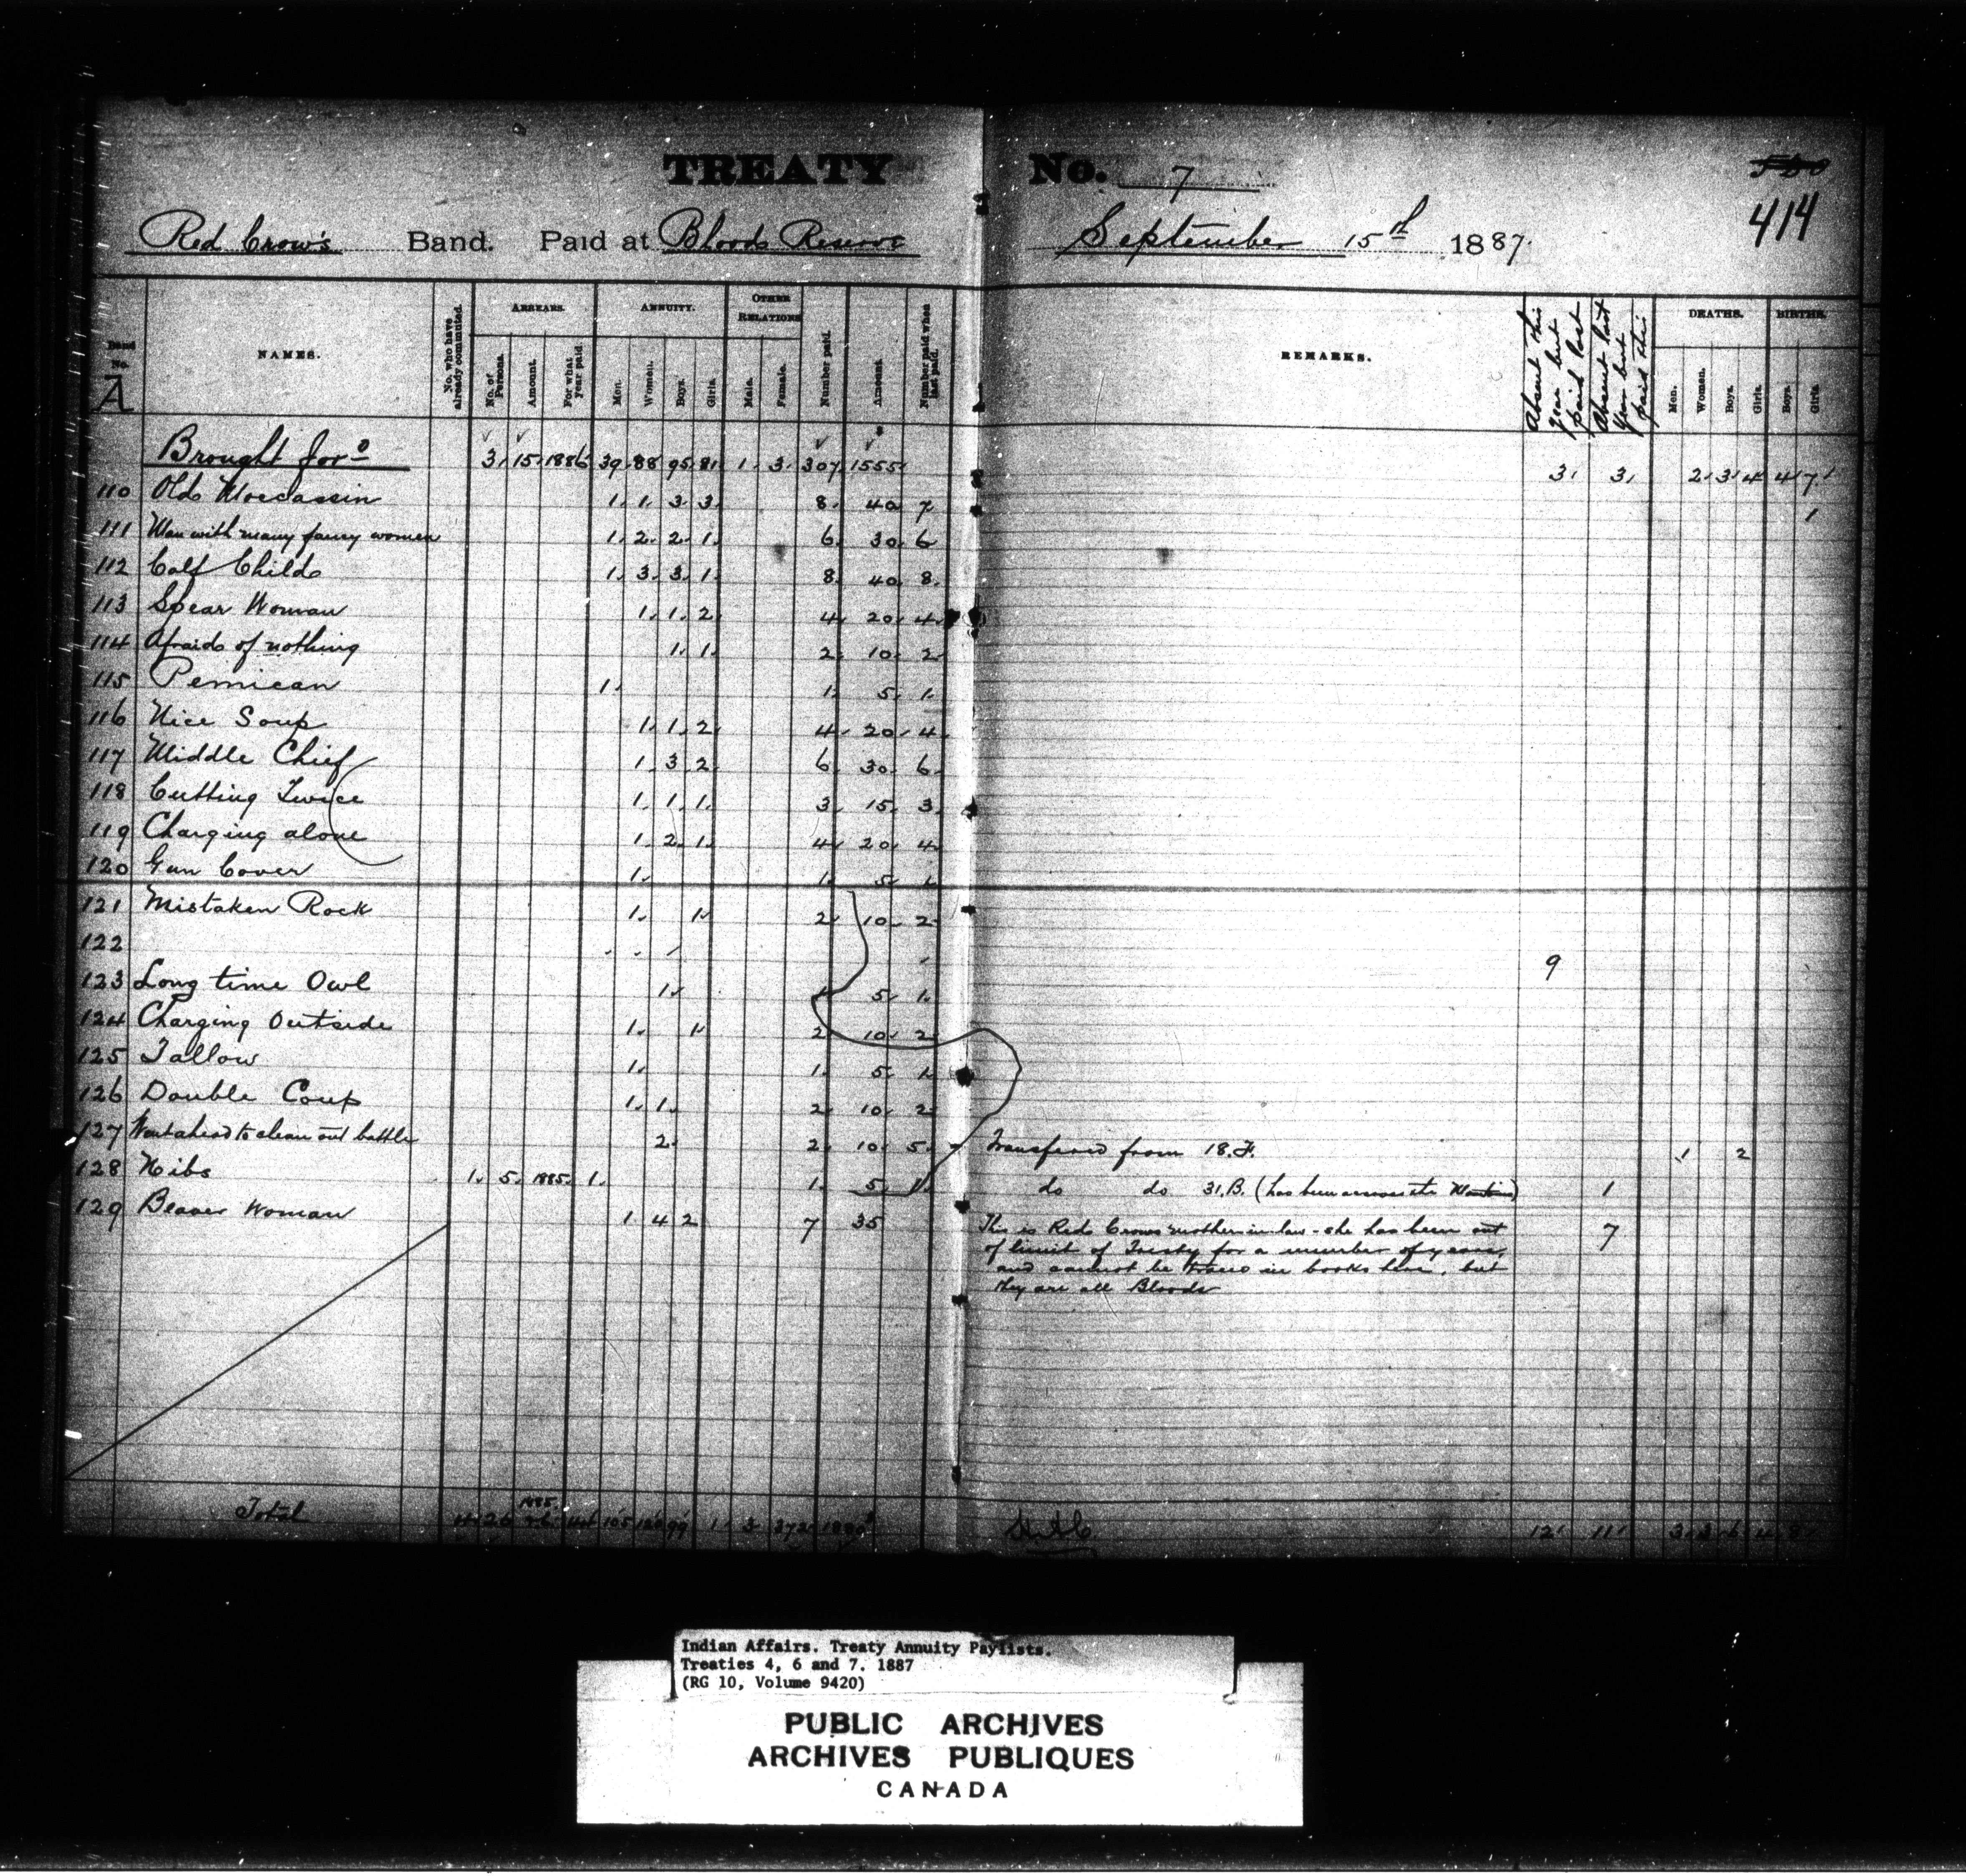 TREATY No. 7
580
414
Red Crow's Band. Paid at Bloods Reserve September 15th 1887.
Band No. A
NAMES.
No. who have already commuted.
ARREARS.
No. of Persons.
Amount.
For what year paid
ANNUITY.
Men.
Women.
Boys.
Girls.
OTHER RELATIONS
Male.
Female.
Number paid.
Amount.
Number paid when last paid.
REMARKS.
Absent this year but paid last
Absent last year but paid this
DEATHS.
Men.
Women.
Boys.
Girls.
BIRTHS.
Boys.
Girls.
Brought for'd 3. 15. 1886 39. 88 95. 81. 1. 3. 307 1555 3. 3. 2. 3. 4 4 7.
110 Old Moccassin 1. 1. 3. 3. 8. 40 7. 1
111 Man with many fancy women 1. 2. 2. 1. 6. 30. 6
112 Calf Child 1. 3. 3. 1. 8. 40. 8.
113 Spear Woman 1. 1. 2. 4. 20. 4.
114 Afraid of nothing 1. 1. 2. 10. 2.
115 Pemican 1. 1. 5. 1.
116 Nice Soup 1. 1. 2. 4. 20. 4.
117 Middle Chief 1. 3. 2. 6. 30. 6.
118 Cutting Twice 1. 1. 1. 3. 15. 3.
119 Charging alone 1. 2. 1. 4. 20. 4.
120 Gun Cover 1. 1. 5. 1.
121 Mistaken Rock 1. 1. 2. 10. 2.
122 9
123 Long time Owl 1. 1. 5. 1.
124 Charging Outside 1. 1. 2. 10. 2.
125 Tallow 1. 1. 5. 1.
126 Double Coup 1. 1. 2. 10. 2.
127 Went ahead to clean out battle 2. 2. 10. 5. Transferred from 18. F. 1 2
128 Nibs 1. 5. 1885. 1. 1. 5. 1. do do 31. B. (has been across the 1
129 Beaver Woman 1. 4 2 7 35 This is Red Crows mother in law - she has been out 7
of limit of Treaty for a number of years,
and cannot be traced in books here, but
they are all Bloods
Total 1885 1. 3 372 12. 11.
Indian Affairs. Treaty Annuity Paylists.
Treaties 4, 6 and 7. 1887
(RG 10, Volume 9420)
PUBLIC ARCHIVES
ARCHIVES PUBLIQUES
CANADA